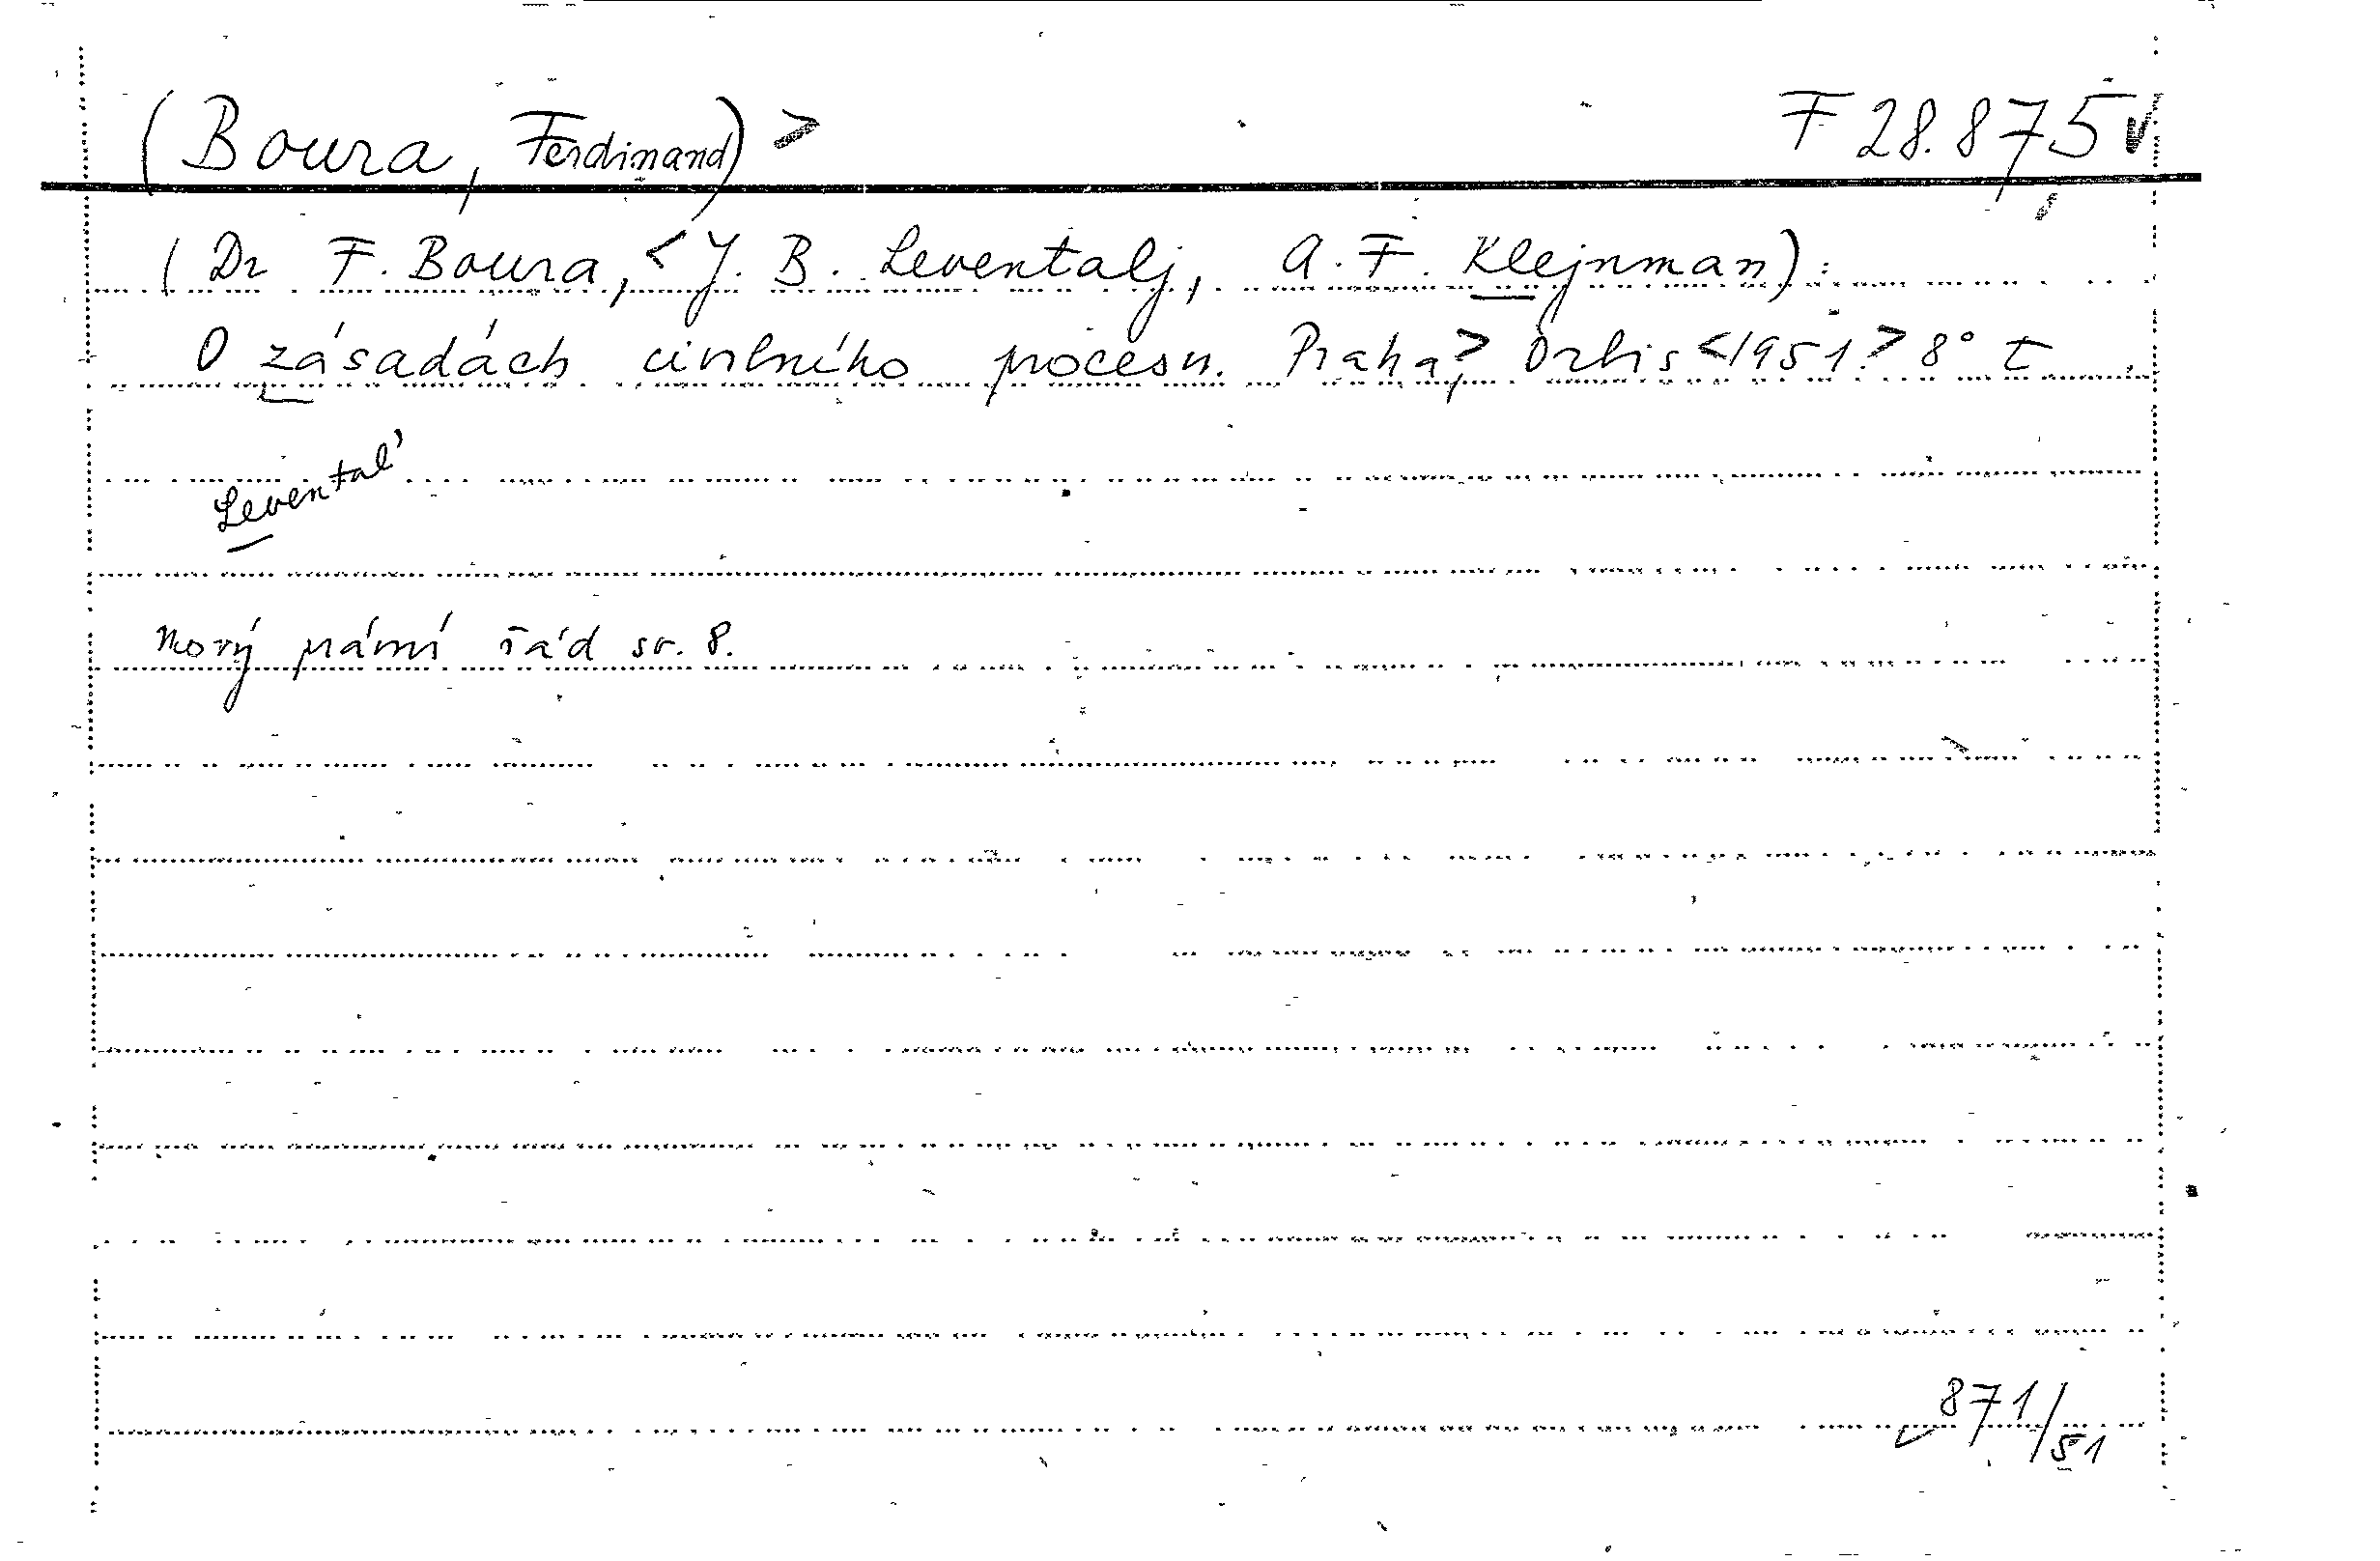 (Boura, Ferdinand) > F 28.875
(Dr F. Boura, < J. B. Leventalj, A. F. Klejnman):
O zásadách civilního procesu. Praha, > Orbis < 1951. > 8° t
Levental'
Nový právní řád sv. 8.
871/51